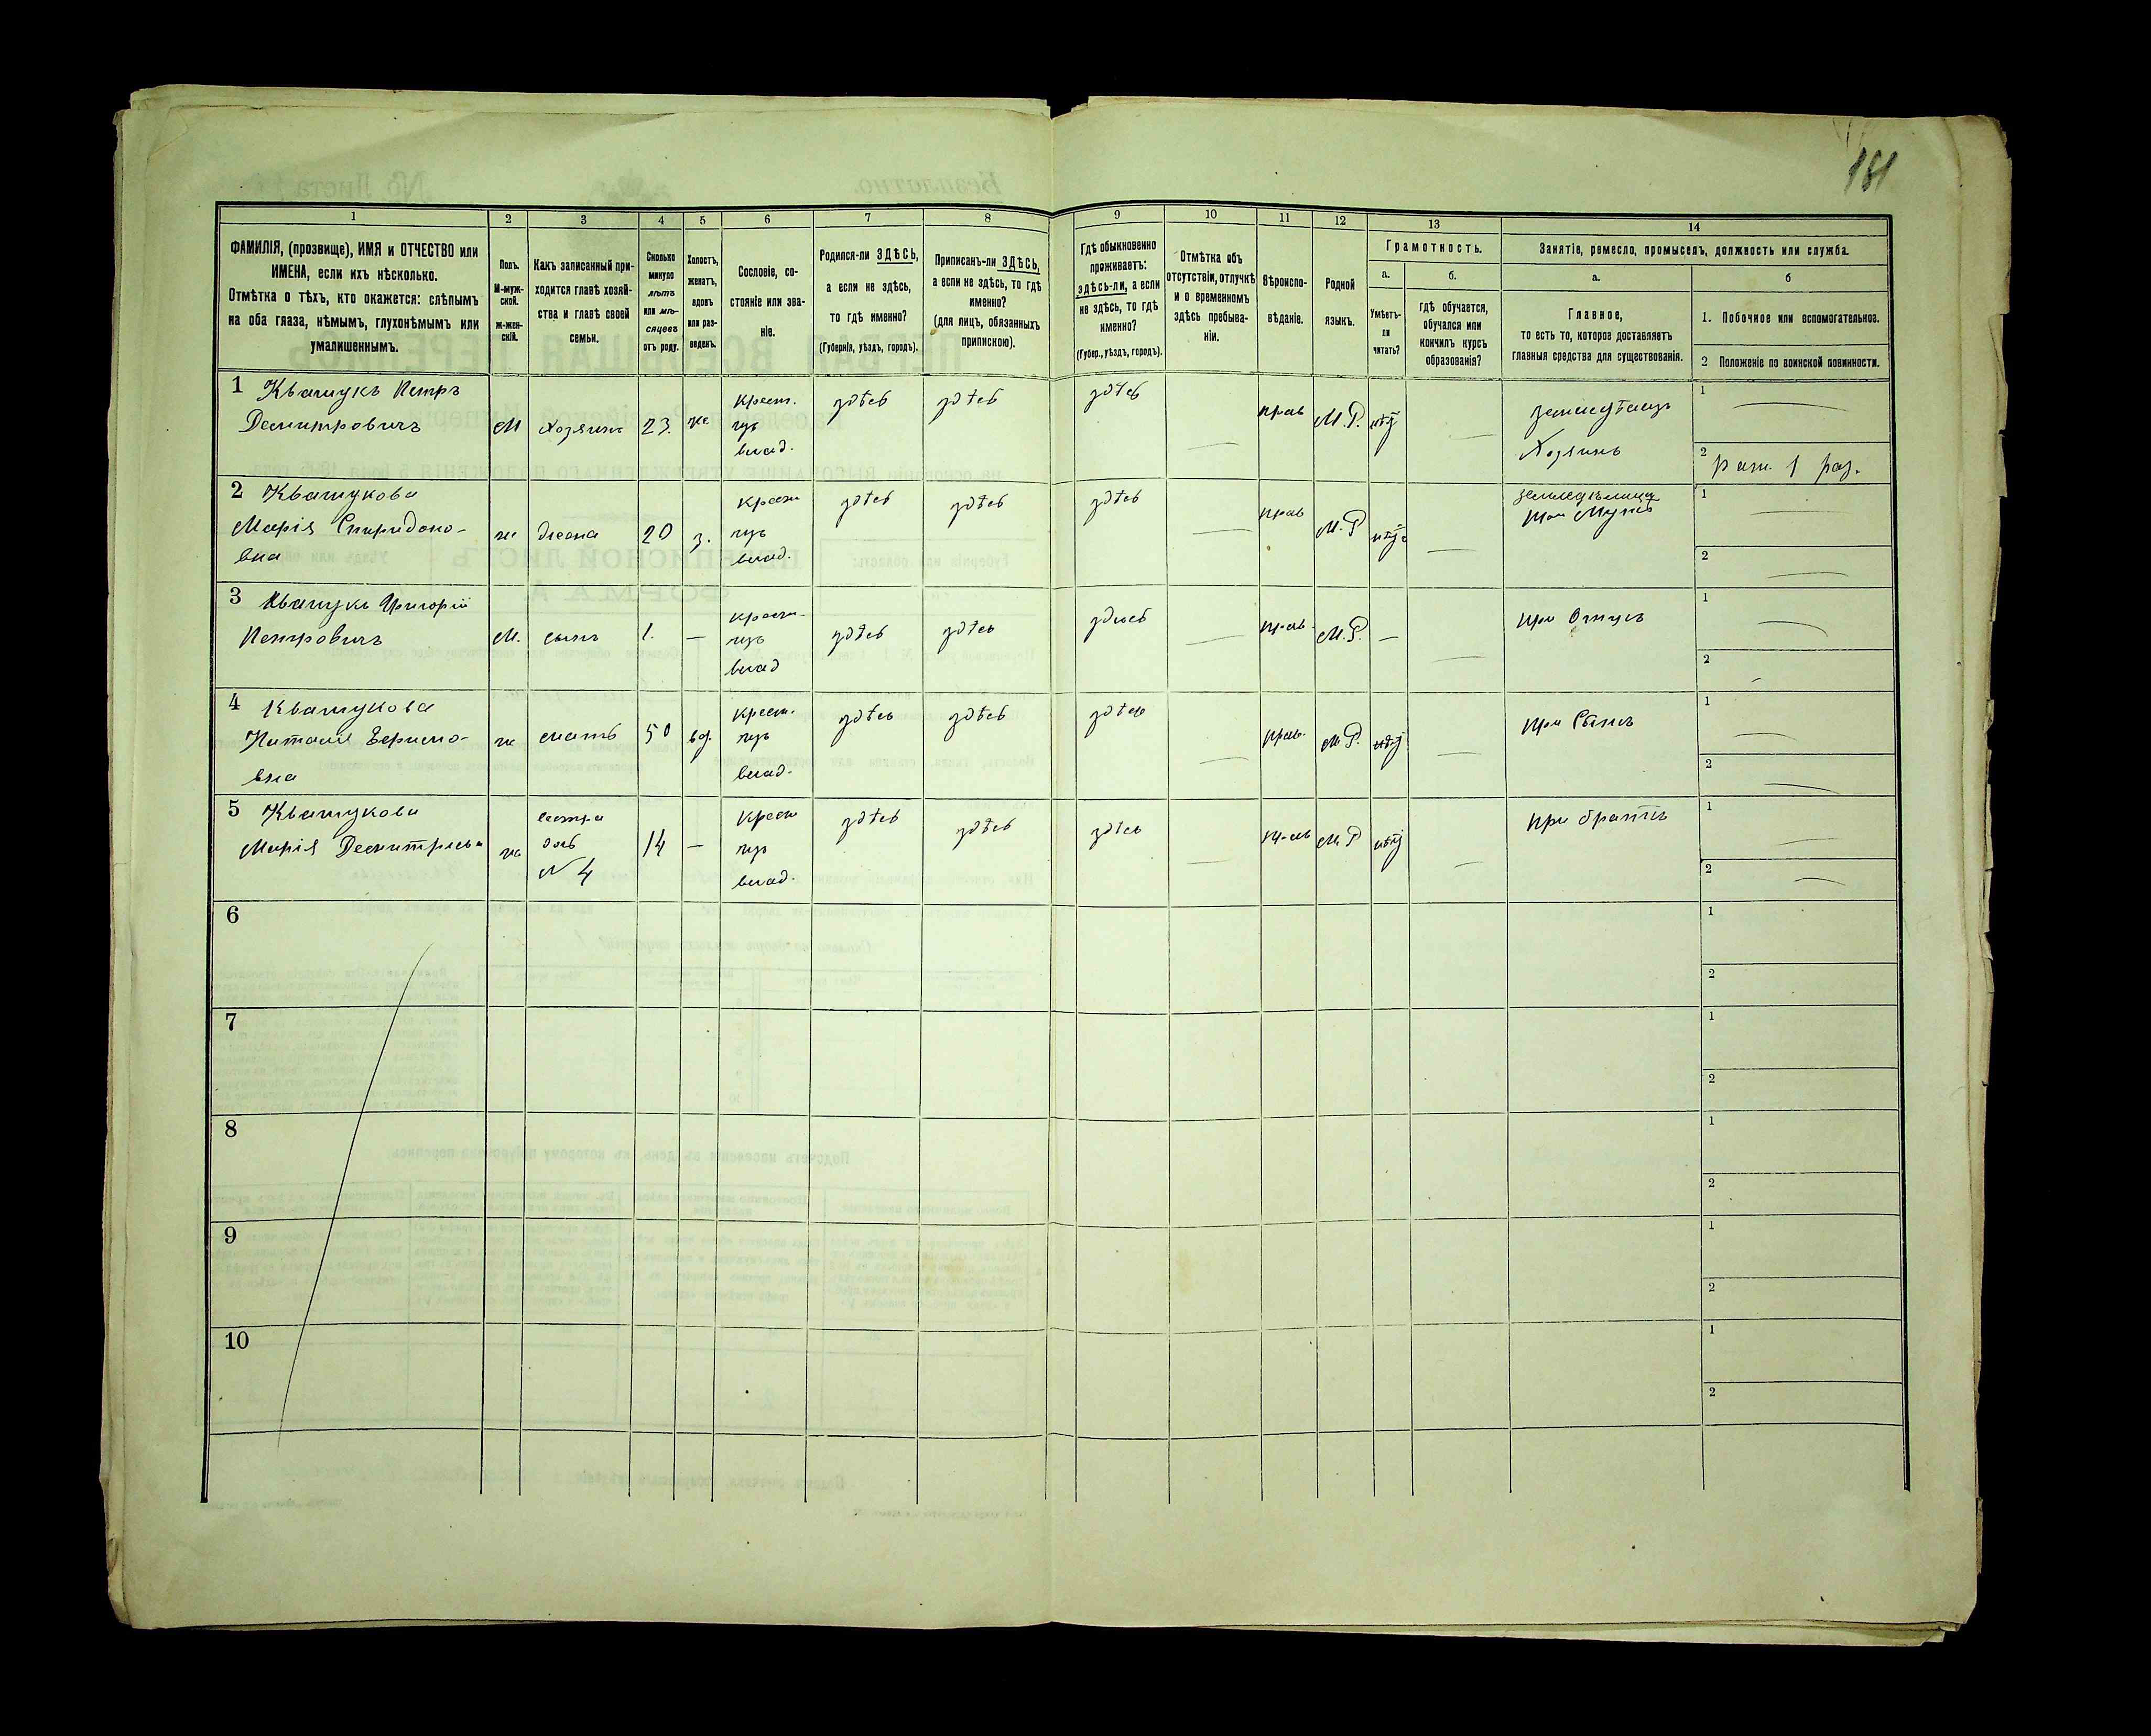 181
1
2
3
4
5
6
7
8
9
10
11
12
13
14
ФАМИЛІЯ, (прозвище), ИМЯ и ОТЧЕСТВО или
ИМЕНА, если ихъ нѣсколько.
Отмѣтка о тѣхъ, кто окажется: слѣпымъ
на оба глаза, нѣмымъ, глухонѣмымъ или
умалишеннымъ.
Полъ.
М-муж-
ской.
ж-жен-
скій.
Какъ записанный при-
ходится главѣ хозяй-
ства и главѣ своей
семьи.
Сколько
минуло
лѣтъ
или мѣ-
сяцевъ
отъ роду.
Холостъ,
женатъ,
вдовъ
или раз-
веденъ.
Сословіе, со-
стояніе или зва-
ніе.
Родился-ли ЗДѢСЬ,
а если не здѣсь,
то гдѣ именно?
(Губернія, уѣздъ, городъ).
Приписанъ-ли ЗДѢСЬ,
а если не здѣсь, то гдѣ
именно?
(для лицъ, обязанныхъ
припискою).
Гдѣ обыкновенно
проживаетъ:
здѣсь-ли, а если
не здѣсь, то гдѣ
именно?
(Губер., уѣздъ, городъ).
Отмѣтка объ
отсутствіи, отлучкѣ
и о временномъ
здѣсь пребыва-
ніи.
Вѣроиспо-
вѣданіе.
Родной
языкъ.
Грамотность.
а.
Умѣетъ-
ли
читать?
б.
гдѣ обучается,
обучался или
кончилъ курсъ
образованія?
Занятіе, ремесло, промыселъ, должность или служба.
а.
Главное,
то есть то, которое доставляетъ
главныя средства для существованія.
б
1. Побочное или вспомогательное.
2 Положеніе по воинской повинности.
1 Квашукъ Петръ
Демитровичъ
М
хозяинъ
23.
же.
крест.
изъ
влад.
здѣсь
здѣсь
здѣсь
прав
М.Р.
нѣтъ
земледѣлецъ
Хозяинъ
1
2 ратн. 1 раз.
2 Квашукова
Марія Спиридоно-
вна
ж
жена
20
з.
крест
изъ
влад.
здѣсь
здѣсь
здѣсь
прав
М.Р
нѣтъ
земледѣлица
при Мужѣ
1
2
3 Квашукъ Григорій
Петровичъ
М.
сынъ
1.
—
крест
изъ
влад
здѣсь
здѣсь
здѣсь
прав.
М.Р.
—
при Отцѣ
1
2
4 Квашукова
Наталія
вна
ж
мать
50
вд.
крест.
изъ
влад.
здѣсь
здѣсь
здѣсь
прав.
М.Р.
нѣтъ
при Сынѣ
1
2
5 Квашукова
Марія Демитріева
ж
сестра
дочь
№ 4
14
—
крест
изъ
влад.
здѣсь
здѣсь
здѣсь
прав
М.Р
нѣтъ
при братѣ
1
2
6
1
2
7
1
2
8
1
2
9
1
2
10
1
2